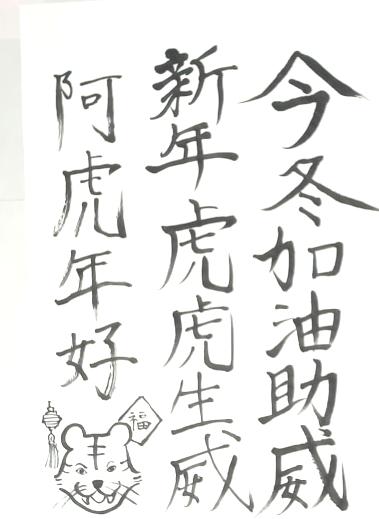 今冬加油助威
新年虎虎生威
阿虎年好
福